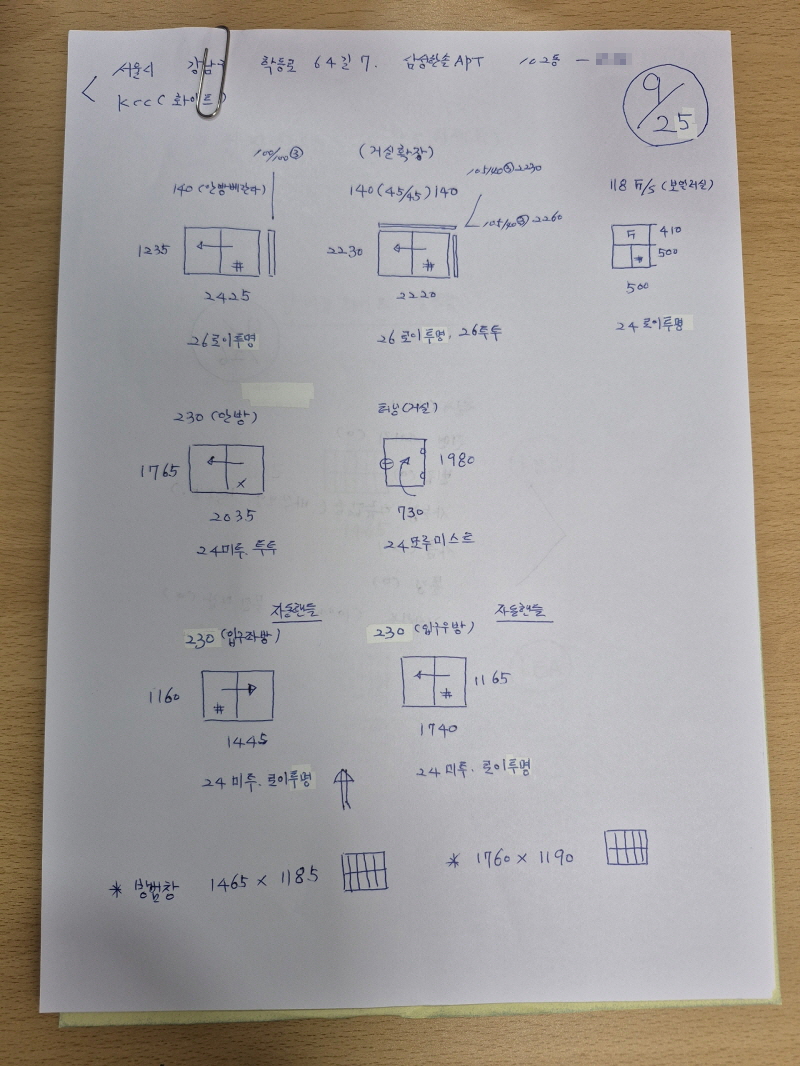 서울시 강남구 학동로 64길 7. 삼성한솔APT 102동 -
KCC (화이트)
9/25
100/100③
(거실확장)
105/40③2230
140 (안방베란다)
140 (45/45) 140
118 F/S (보일러실)
105/40③2260
1235
2230
F
410
500
#
#
#
2425
2220
500
26로이투명
26로이투명, 26투투
24로이투명
230 (안방)
터닝(거실)
1765
1980
x
2035
730
24미투. 투투
24모루미스트
자동핸들
자동핸들
230 (입구좌방)
230 (입구우방)
1160
1165
#
#
1445
1740
24미투. 로이투명
24미투. 로이투명
* 방범창 1465 x 1185
* 1760 x 1190